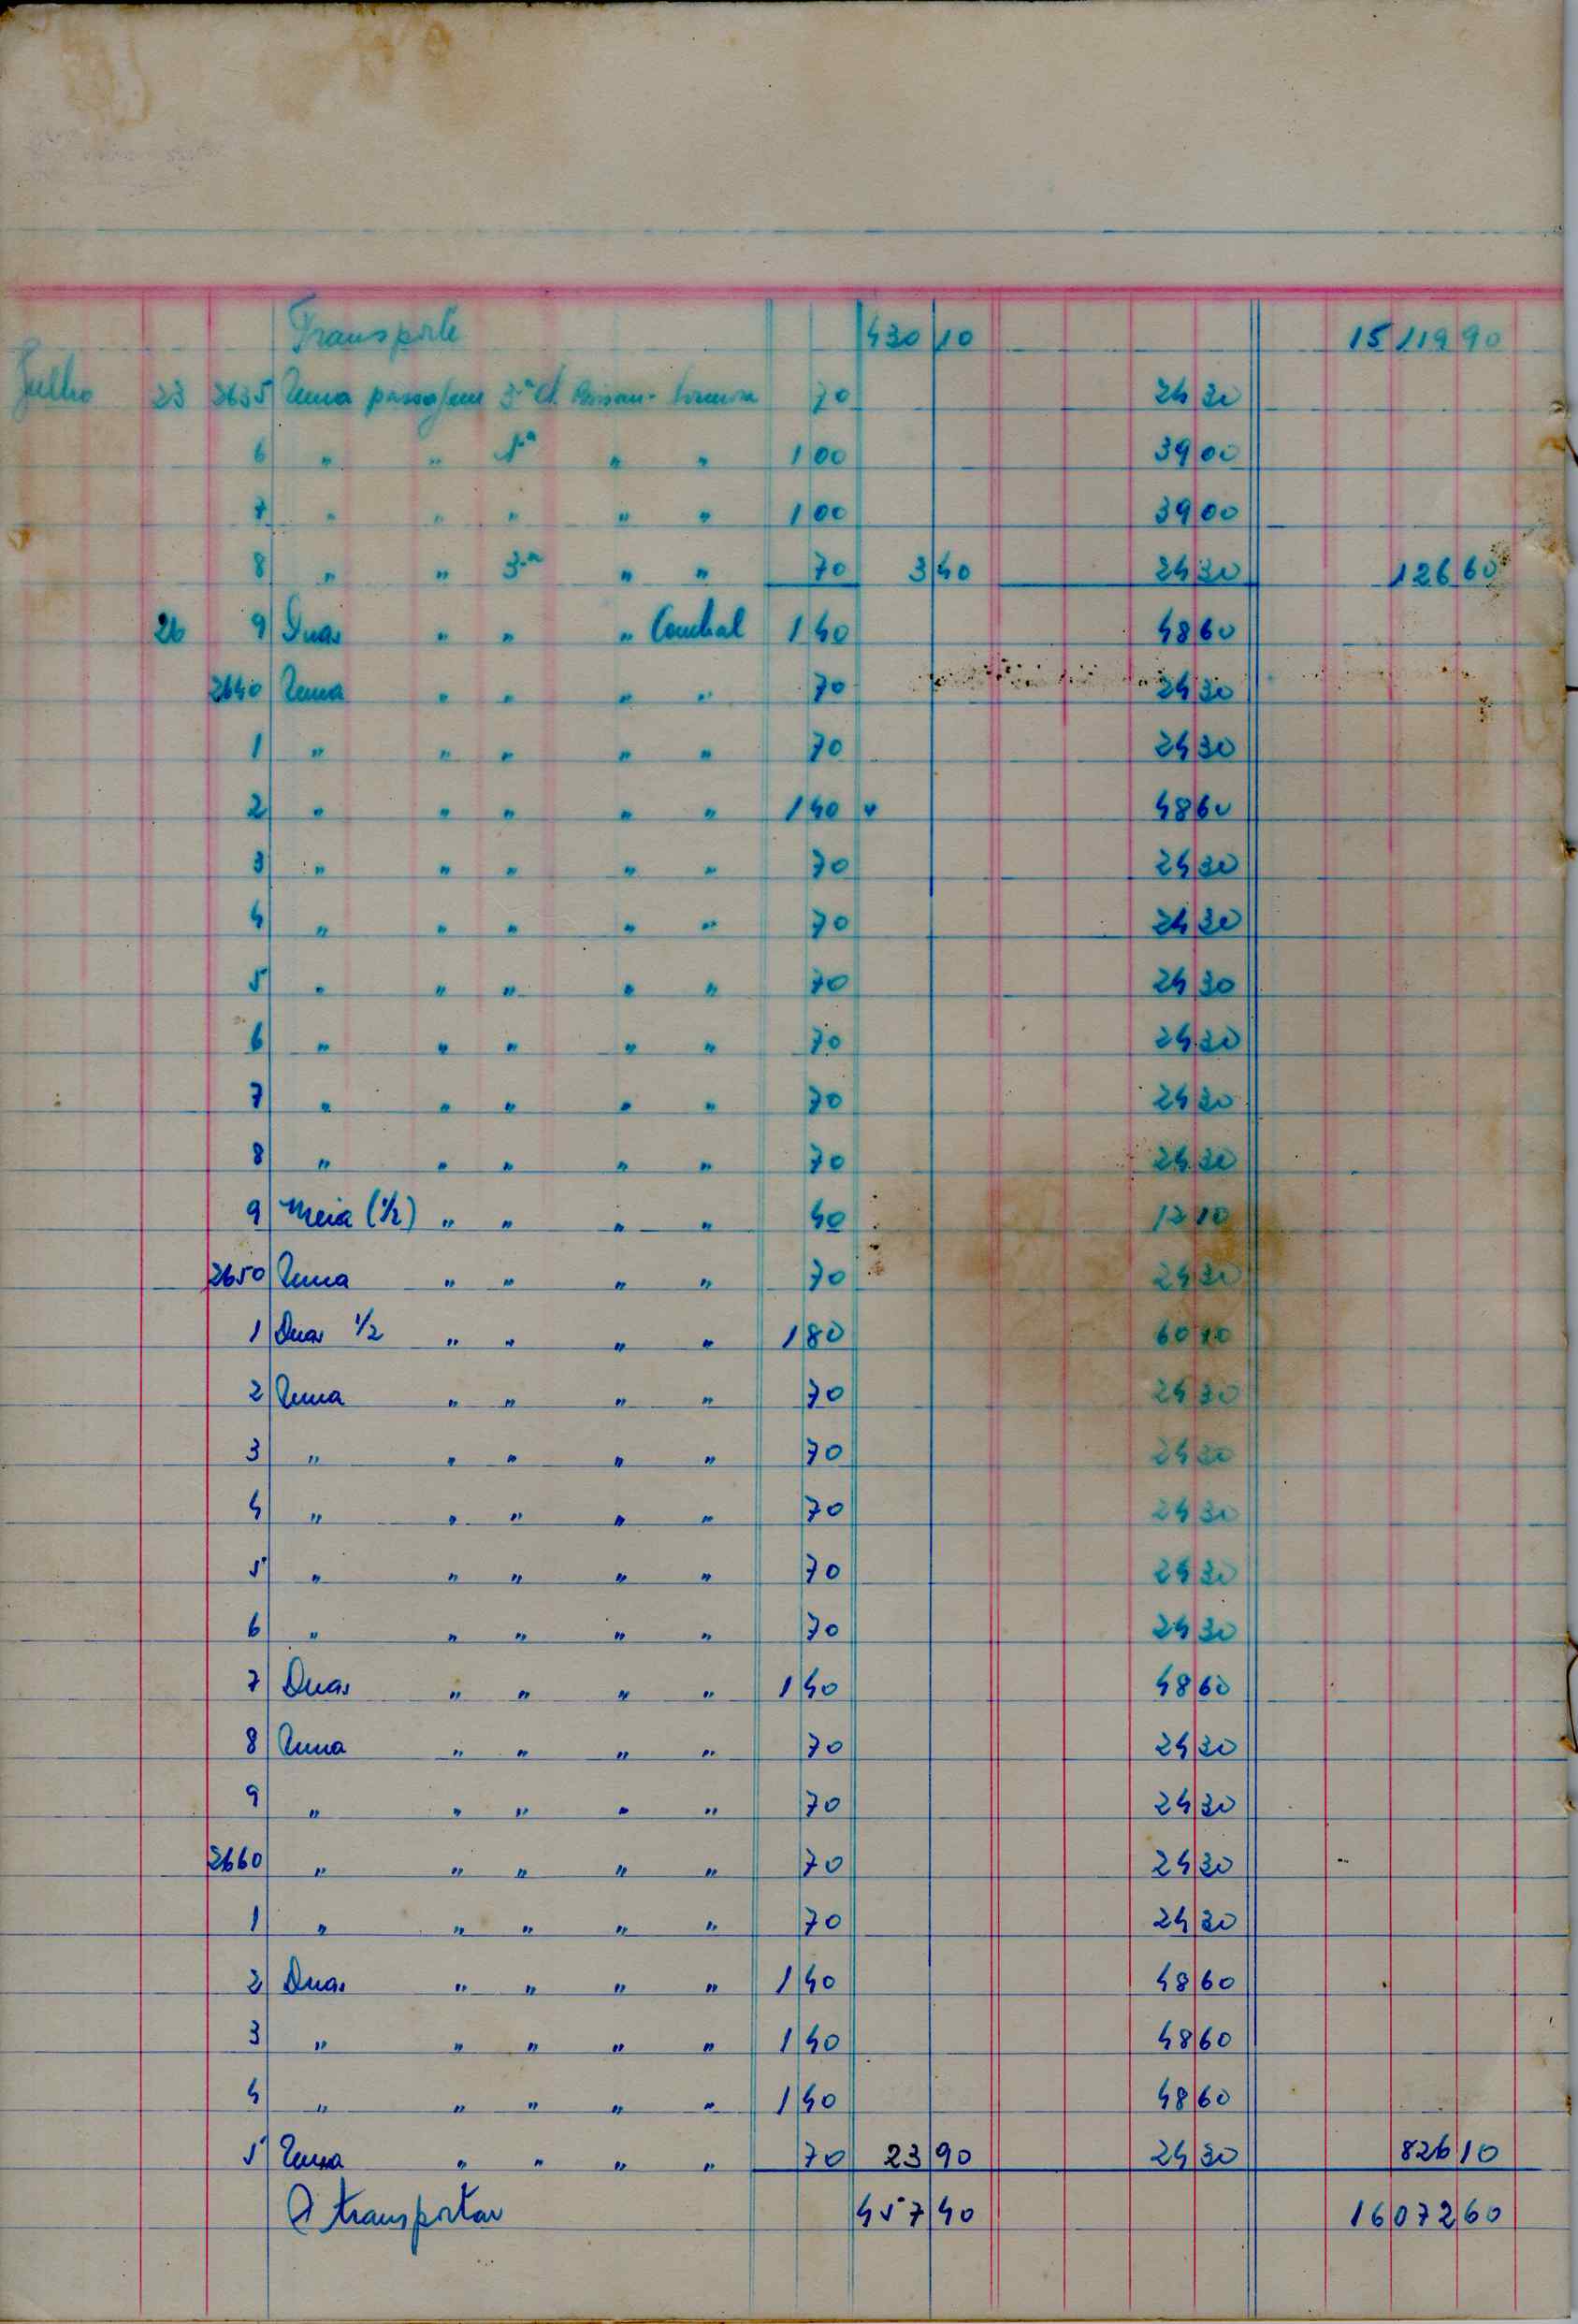 Transporte 430 10 15 119 90
Julho 23 2635 Uma passagem 3.ª Cl. Bissau - Formosa 70 24 30
6 " " 1.ª " " 1 00 39 00
7 " " " " " 1 00 39 00
8 " " 3.ª " " 70 3 40 24 30 126 60
26 9 Duas " " " 1 40 48 60
2640 Uma " " " " 70 24 30
1 " " " " " 70 24 30
2 " " " " " 1 40 v 48 60
3 " " " " " 70 24 30
4 " " " " " 70 24 30
5 " " " " " 70 24 30
6 " " " " " 70 24 30
7 " " " " " 70 24 30
8 " " " " " 70 24 30
9 Meia (1/2) " " " " 40 12 10
2650 Uma " " " " 70 24 30
1 Duas 1/2 " " " " 1 80 60 70
2 Uma " " " " 70 24 30
3 " " " " " 70 24 30
4 " " " " " 70 24 30
5 " " " " " 70 24 30
6 " " " " " 70 24 30
7 Duas " " " " 1 40 48 60
8 Uma " " " " 70 24 30
9 " " " " " 70 24 30
2660 " " " " " 70 24 30
1 " " " " " 70 24 30
2 Duas " " " " 1 40 48 60
3 " " " " " 1 40 48 60
4 " " " " " 1 40 48 60
5 Uma " " " " 70 23 90 24 30 826 10
A transportar 457 40 16 072 60